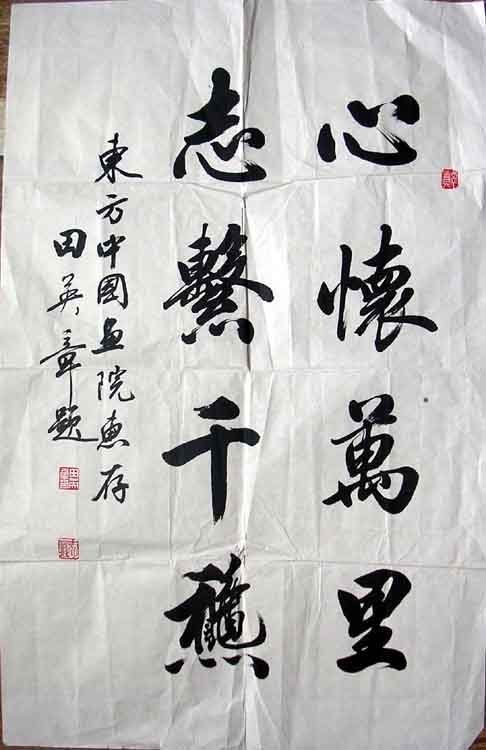 心懷萬里
志繫千龝
東方中國畫院惠存
田英章題